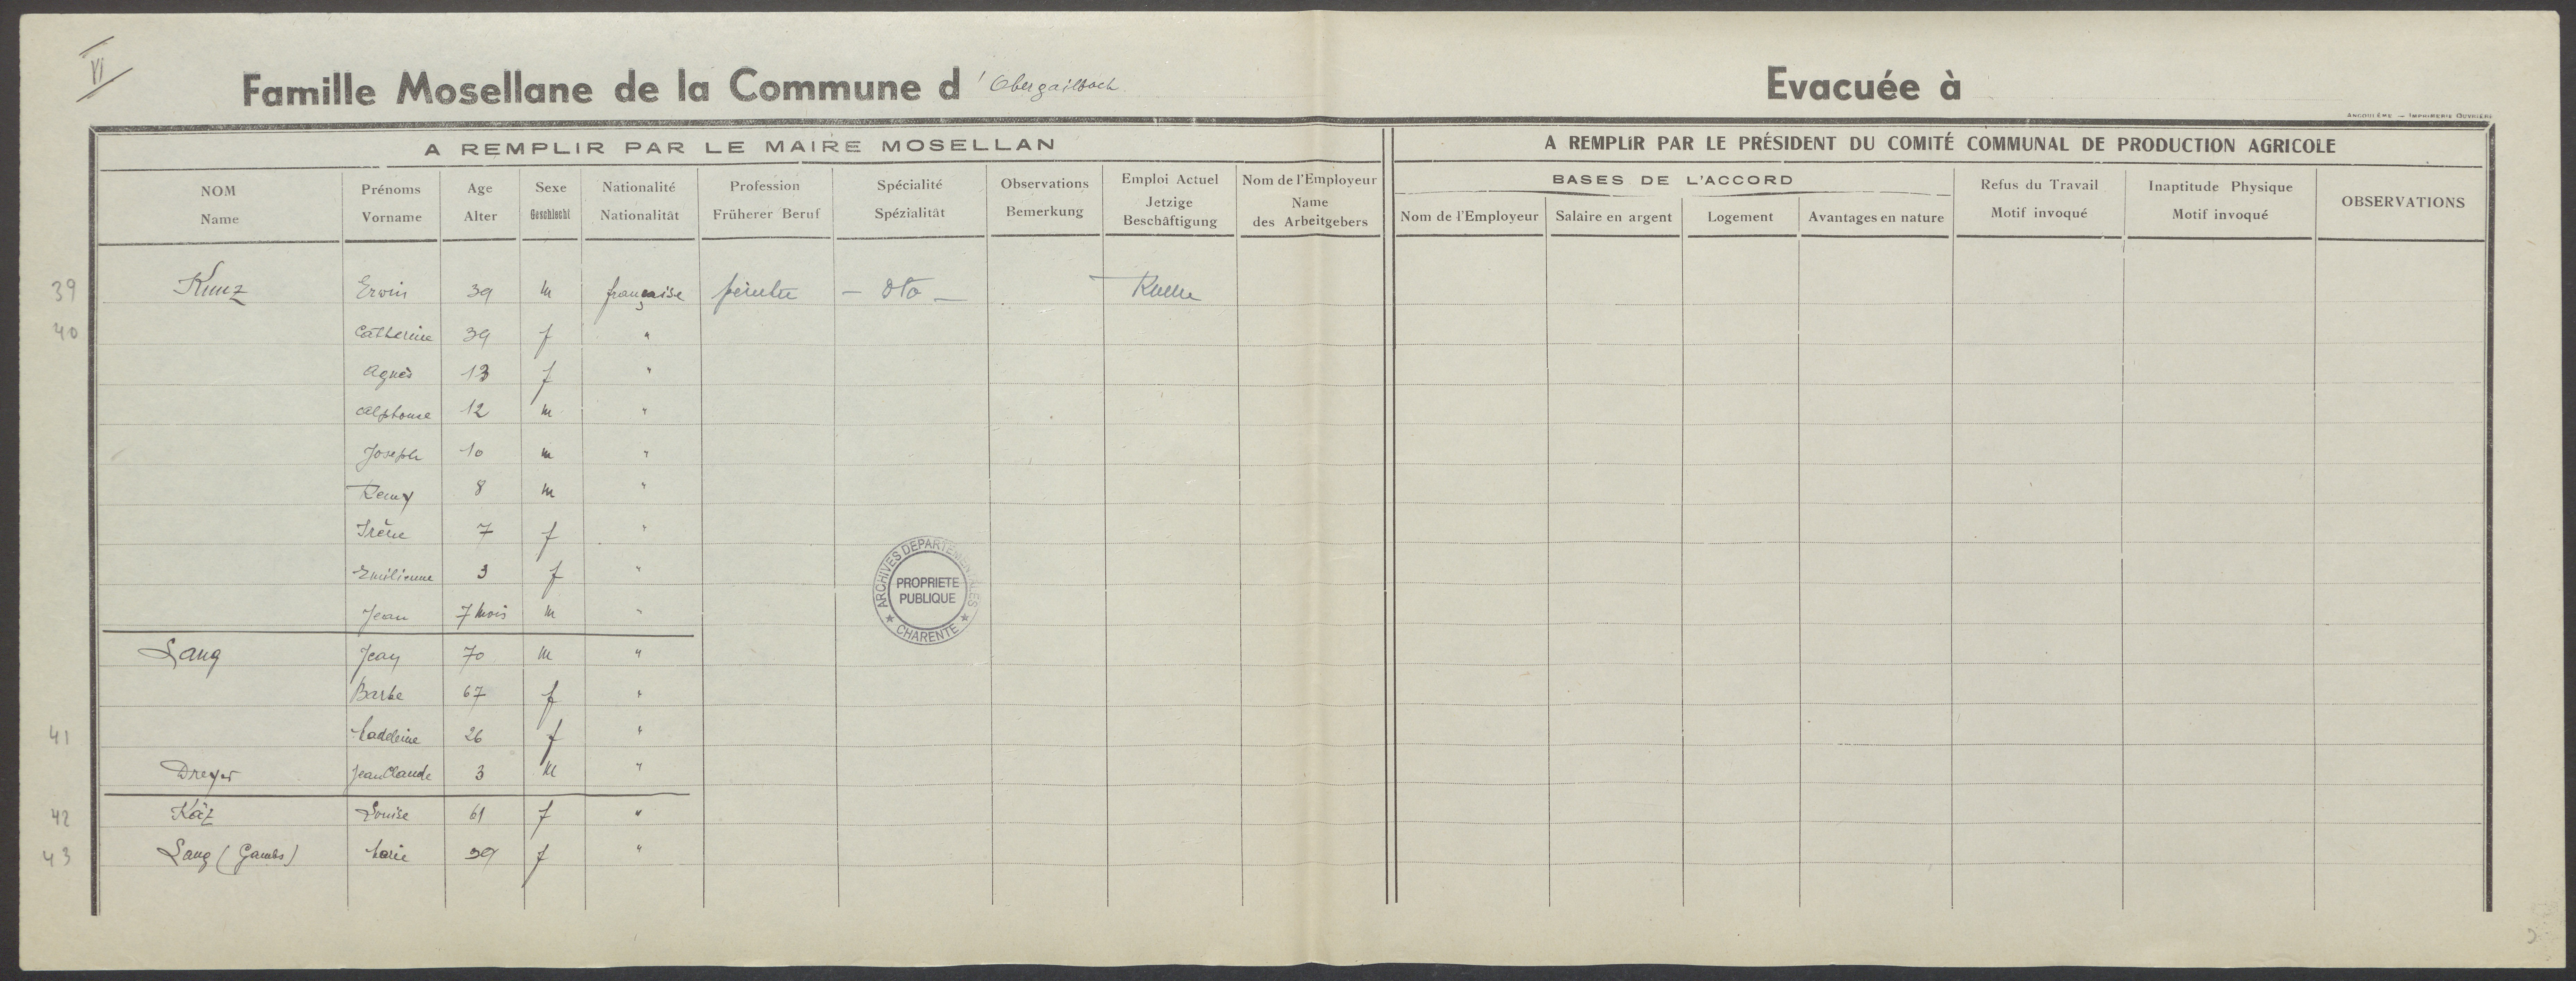 VI
Famille Mosellane de la Commune d'Obergailbach
Evacuée à
ANGOULÊME — IMPRIMERIE OUVRIÈRE
A REMPLIR PAR LE MAIRE MOSELLAN
A REMPLIR PAR LE PRÉSIDENT DU COMITÉ COMMUNAL DE PRODUCTION AGRICOLE
NOM Name
Prénoms Vorname
Age Alter
Sexe Geschlecht
Nationalité Nationalität
Profession Früherer Beruf
Spécialité Spézialität
Observations Bemerkung
Emploi Actuel Jetzige Beschäftigung
Nom de l'Employeur Name des Arbeitgebers
BASES DE L'ACCORD
Nom de l'Employeur
Salaire en argent
Logement
Avantages en nature
Refus du Travail Motif invoqué
Inaptitude Physique Motif invoqué
OBSERVATIONS
39 Kunz Erwin 39 m française peintre — dto — Ruelle
40 Catherine 39 f "
Agnès 13 f "
Alphonse 12 m "
Joseph 10 m "
Remy 8 m "
Irène 7 f "
Emilienne 3 f "
Jean 7 mois m "
Lang Jean 70 m "
Barbe 67 f "
41 Madeleine 26 f "
Dreyer Jean Claude 3 m "
42 Käz Louise 61 f "
43 Lang (Gambs) Marie 39 f "
ARCHIVES DEPARTEMENTALES
PROPRIETE
PUBLIQUE
★ CHARENTE ★